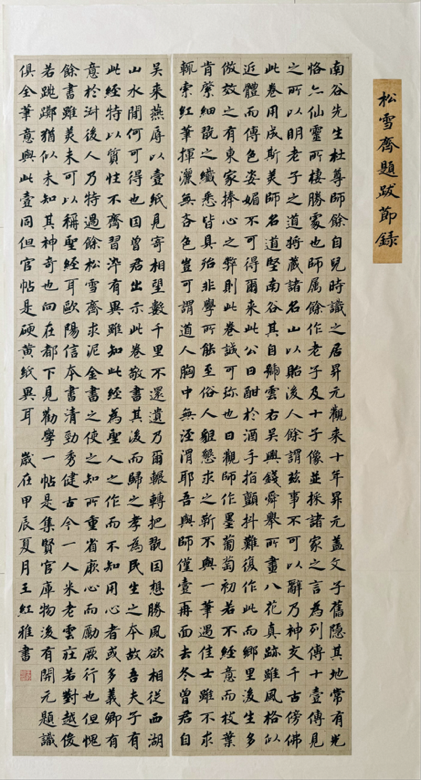 松雪齋題跋節錄
南谷先生杜尊師餘自兒時識之居昇元觀来十年昇元盖文子舊隱其地常有光
恠六仙靈所棲勝處也師属餘作老子及十子像並採諸家之言為列傳十壹傳見
之所以明老子之道將藏諸名山以貽後人餘謂兹事不可以辭乃神亥千古傍佛
此卷用成斯美師名道堅南谷其自號云右吳興錢舜舉所畫八花真跡雖風格似
近體而傳色姿媚不可得爾来此公日酣於酒手指顫抖難復作此而鄉里後生多
倣效之有東家捧心之弊則此卷誠可弥也日觀師作墨葡萄初若不經意而枝葉
肯綮細翫之纖悉皆具殆非學所能至俗人輒懇求之靳不與一筆遇佳士雖不求
輒索紅筆揮灑無各色豈可謂道人胸中無涇渭耶吾與師僅壹再面去冬曾君自
吴来燕辱以壹紙見寄相望數千里不還遺乃爾輾轉把翫因想勝風欲相從西湖
山水間何可得也因曾君出示此卷敬書其後而歸之孝為民生之本故吾夫子有
此經特以質性不齊習染有異雖知此經為聖人之作而不知用心者或多義卿有
意於後人乃特過餘松雪齋求泥金書之使之知所重省厥心而勵厥行也但愧
餘書雖美未可以稱聖經耳歐陽信本書清勁秀健古今一人米老雲莊若對越俊
若跛躑猶似未知其神奇也向在都下見勸學一帖是集賢官庫物後有開元題識
俱全筆意與此壹同但官帖是硬黄紙異耳 歲在甲辰夏月王紅雅書